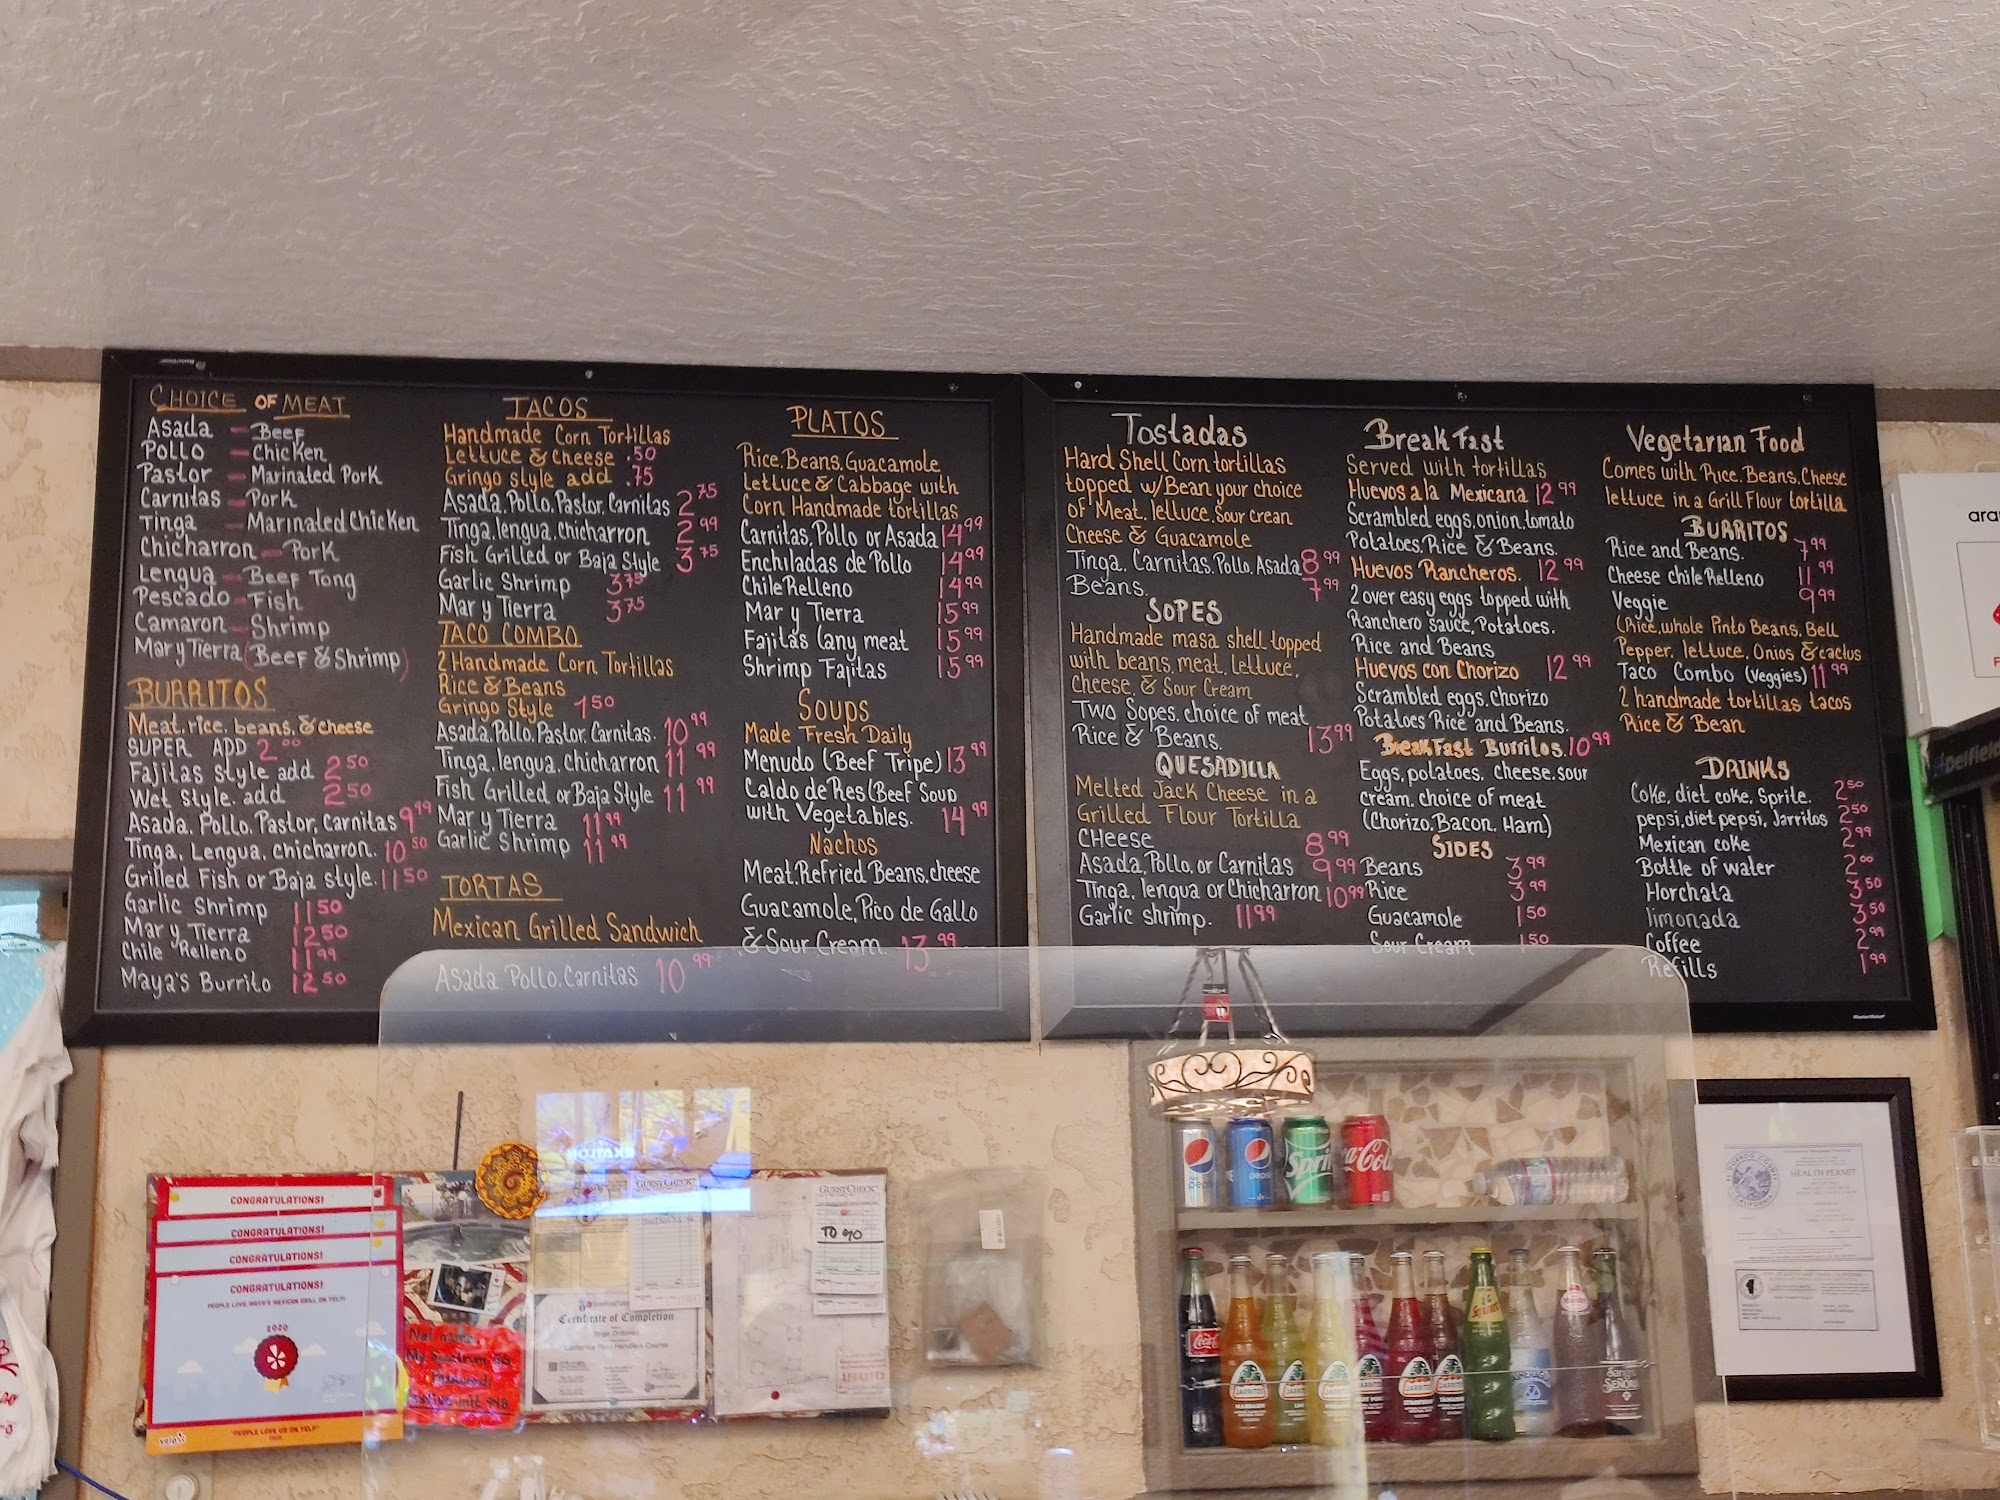 CHOICE OF MEAT
Asada - Beef
Pollo - Chicken
Pastor - Marinated Pork
Carnitas - Pork
Tinga - Marinated Chicken
Chicharron - Pork
Lengua - Beef Tong
Pescado - Fish
Camaron - Shrimp
Mar y Tierra (Beef & Shrimp)
BURRITOS
Meat, rice, beans, & cheese
SUPER ADD 2.00
Fajitas style add 2.50
Wet style. add 2.50
Asada, Pollo, Pastor, Carnitas 9.99
Tinga, Lengua, chicharron. 10.50
Grilled Fish or Baja style. 11.50
Garlic Shrimp 11.50
Mar y Tierra 12.50
Chile Relleno 11.99
Maya's Burrito 12.50
TACOS
Handmade Corn Tortillas
Lettuce & Cheese .50
Gringo style add .75
Asada, Pollo, Pastor, Carnitas 2.75
Tinga, lengua, chicharron 2.99
Fish Grilled or Baja Style 3.75
Garlic Shrimp 3.75
Mar y Tierra 3.75
TACO COMBO
2 Handmade Corn Tortillas
Rice & Beans
Gringo Style 1.50
Asada, Pollo, Pastor, Carnitas. 10.99
Tinga, lengua, chicharron 11.99
Fish Grilled or Baja Style 11.99
Mar y Tierra 11.99
Garlic Shrimp 11.99
TORTAS
Mexican Grilled Sandwich
Asada, Pollo, Carnitas 10.99
PLATOS
Rice, Beans, Guacamole
Lettuce & Cabbage with
Corn Handmade tortillas
Carnitas, Pollo or Asada 14.99
Enchiladas de Pollo 14.99
Chile Relleno 14.99
Mar y Tierra 15.99
Fajitas (any meat 15.99
Shrimp Fajitas 15.99
SOUPS
Made Fresh Daily
Menudo (Beef Tripe) 13.99
Caldo de Res (Beef Soup
with Vegetables. 14.99
Nachos
Meat, Refried Beans, cheese
Guacamole, Pico de Gallo
& Sour Cream. 13.99
Tostadas
Hard Shell Corn tortillas
topped w/Bean your choice
of Meat, lettuce, sour crean
Cheese & Guacamole
Tinga, Carnitas, Pollo, Asada 8.99
Beans. 7.99
SOPES
Handmade masa shell topped
with beans, meat, lettuce,
Cheese, & Sour Cream
Two Sopes, choice of meat
Rice & Beans. 13.99
QUESADILLA
Melted Jack Cheese in a
Grilled Flour Tortilla
CHeese 8.99
Asada, Pollo, or Carnitas 9.99
Tinga, lengua or Chicharron 10.99
Garlic shrimp. 11.99
BreakFast
Served with tortillas
Huevos a la Mexicana 12.99
Scrambled eggs, onion, tomato
Potatoes, Rice & Beans.
Huevos Rancheros. 12.99
2 over easy eggs topped with
Ranchero sauce, Potatoes.
Rice and Beans
Huevos con Chorizo 12.99
Scrambled eggs, Chorizo
Potatoes Rice and Beans.
BreakFast Burritos. 10.99
Eggs, potatoes, cheese, sour
cream, choice of meat
(Chorizo, Bacon, Ham)
SIDES
Beans 3.99
Rice 3.99
Guacamole 1.50
Sour Cream 1.50
Vegetarian Food
Comes with Rice, Beans, Cheese
lettuce in a Grill Flour tortilla
BURRITOS
Rice and Beans. 7.99
Cheese chile Relleno 11.99
Veggie 9.99
(Rice, whole Pinto Beans, Bell
Pepper, lettuce, Onios & cactus
Taco Combo (veggies) 11.99
2 handmade tortillas tacos
Rice & Bean
DRINKS
Coke, diet coke, Sprite. 2.50
pepsi, diet pepsi, Jarritos 2.50
Mexican coke 2.99
Bottle of water 2.00
Horchata 3.50
limonada 3.50
Coffee 2.99
Refills 1.99
Delfield
CONGRATULATIONS!
CONGRATULATIONS!
CONGRATULATIONS!
CONGRATULATIONS!
PEOPLE LOVE MAYA'S MEXICAN GRILL ON YELP!
2020
yelp
"PEOPLE LOVE US ON YELP"
GUESTCHECK
GUESTCHECK
TO GO
Certificate of Completion
California Food Handlers Course
APPROVED
pepsi
Sprite
Coca-Cola
Coca-Cola
JARRITOS
MANDARIN
JARRITOS
JARRITOS
JARRITOS
JARRITOS
JARRITOS
SQUIRT
Sangria
SEÑORIAL
HEALTH PERMIT